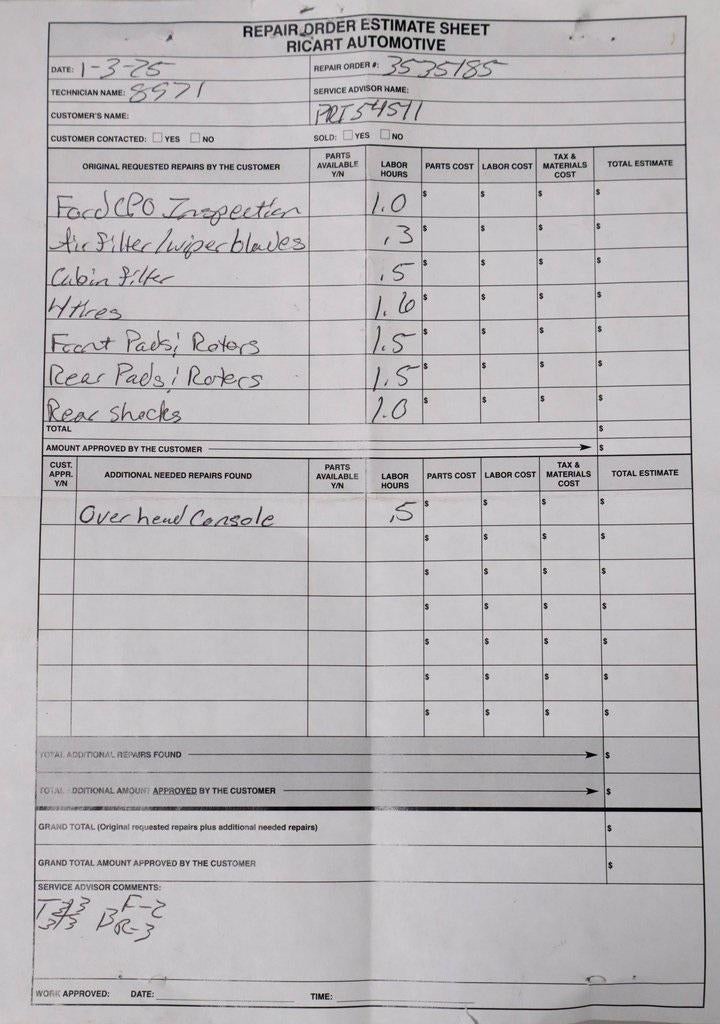 REPAIR ORDER ESTIMATE SHEET
RICART AUTOMOTIVE
DATE: 1-3-25 REPAIR ORDER #: 3535185
TECHNICIAN NAME: 8971 SERVICE ADVISOR NAME:
CUSTOMER'S NAME: PRT54511
CUSTOMER CONTACTED: YES NO SOLD: YES NO
ORIGINAL REQUESTED REPAIRS BY THE CUSTOMER PARTS AVAILABLE Y/N LABOR HOURS PARTS COST LABOR COST TAX & MATERIALS COST TOTAL ESTIMATE
Ford CPO Inspection 1.0 $ $ $ $
Air filter/wiper blades .3 $ $ $ $
Cabin filter .5 $ $ $ $
4 tires 1.6 $ $ $ $
Front Pads; Rotors 1.5 $ $ $ $
Rear Pads; Roters 1.5 $ $ $ $
Rear shocks 1.0 $ $ $ $
TOTAL $
AMOUNT APPROVED BY THE CUSTOMER $
CUST. APPR. Y/N ADDITIONAL NEEDED REPAIRS FOUND PARTS AVAILABLE Y/N LABOR HOURS PARTS COST LABOR COST TAX & MATERIALS COST TOTAL ESTIMATE
Overhead Console .5 $ $ $ $
$ $ $ $
$ $ $ $
$ $ $ $
$ $ $ $
$ $ $ $
$ $ $ $
TOTAL ADDITIONAL REPAIRS FOUND $
TOTAL ADDITIONAL AMOUNT APPROVED BY THE CUSTOMER $
GRAND TOTAL (Original requested repairs plus additional needed repairs) $
GRAND TOTAL AMOUNT APPROVED BY THE CUSTOMER $
SERVICE ADVISOR COMMENTS:
T 3/3 F-2
3/3 B R-3
WORK APPROVED: DATE: TIME: